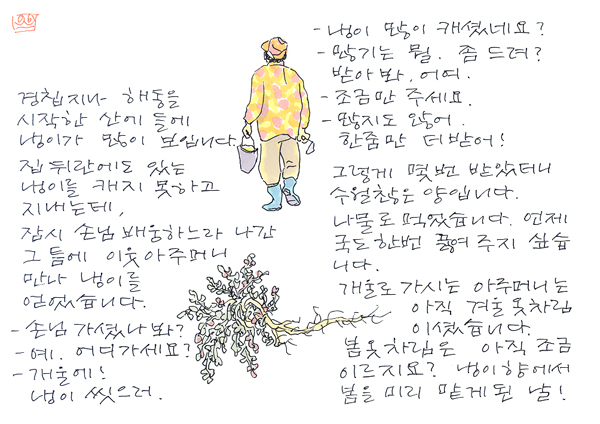 경칩지나 해동을
시작한 산에 들에
냉이가 많이 보입니다.
집 뒤란에도 있는
냉이를 캐지 못하고
지내는데,
잠시 손님 배웅하느라 나간
그 틈에 이웃아주머니
만나 냉이를
얻었습니다.
- 손님 가셨나 봐?
- 예. 어디가세요?
- 개울에!
냉이 씻으러.
- 냉이 많이 캐셨네요?
- 많기는 뭘. 좀 드려?
받아 봐, 어여.
- 조금만 주세요.
- 많지도 않어.
한줌만 더 받어!
그렇게 몇번 받았더니
수월찮은 양입니다.
나물로 먹었습니다. 언제
국도 한번 끓여 주지 싶습
니다.
개울로 가시는 아주머니는
아직 겨울 옷차림
이셨습니다.
봄 옷차림은 아직 조금
이르지요? 냉이 향에서
봄을 미리 맡게 된 날!